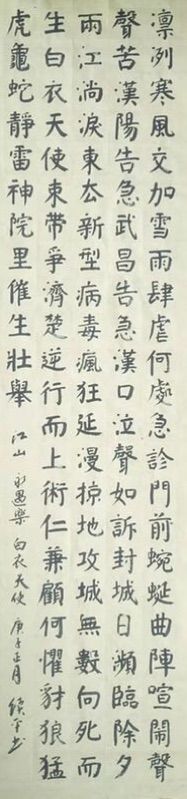 凛冽寒風交加雪雨肆虐何處急診門前蜿蜒曲陣喧鬧聲
聲苦漢陽告急武昌告急漢口泣聲如訴封城日瀕臨除夕
雨江淌淚東去新型病毒瘋狂延漫掠地攻城無數向死而
生白衣天使束帶爭濟楚逆行而上術仁兼顧何懼豺狼猛
虎龜蛇靜雷神院里催生壯舉
江山 永遇樂 白衣天使 庚子正月 書